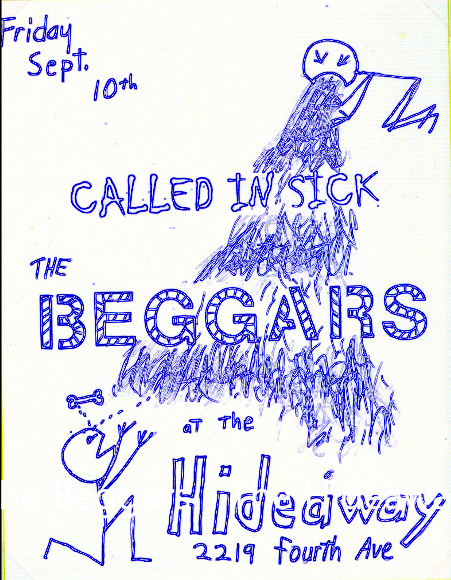 Friday
Sept.
10th
CALLED IN SICK
THE
BEGGARS
at The
Hideaway
2219 fourth Ave